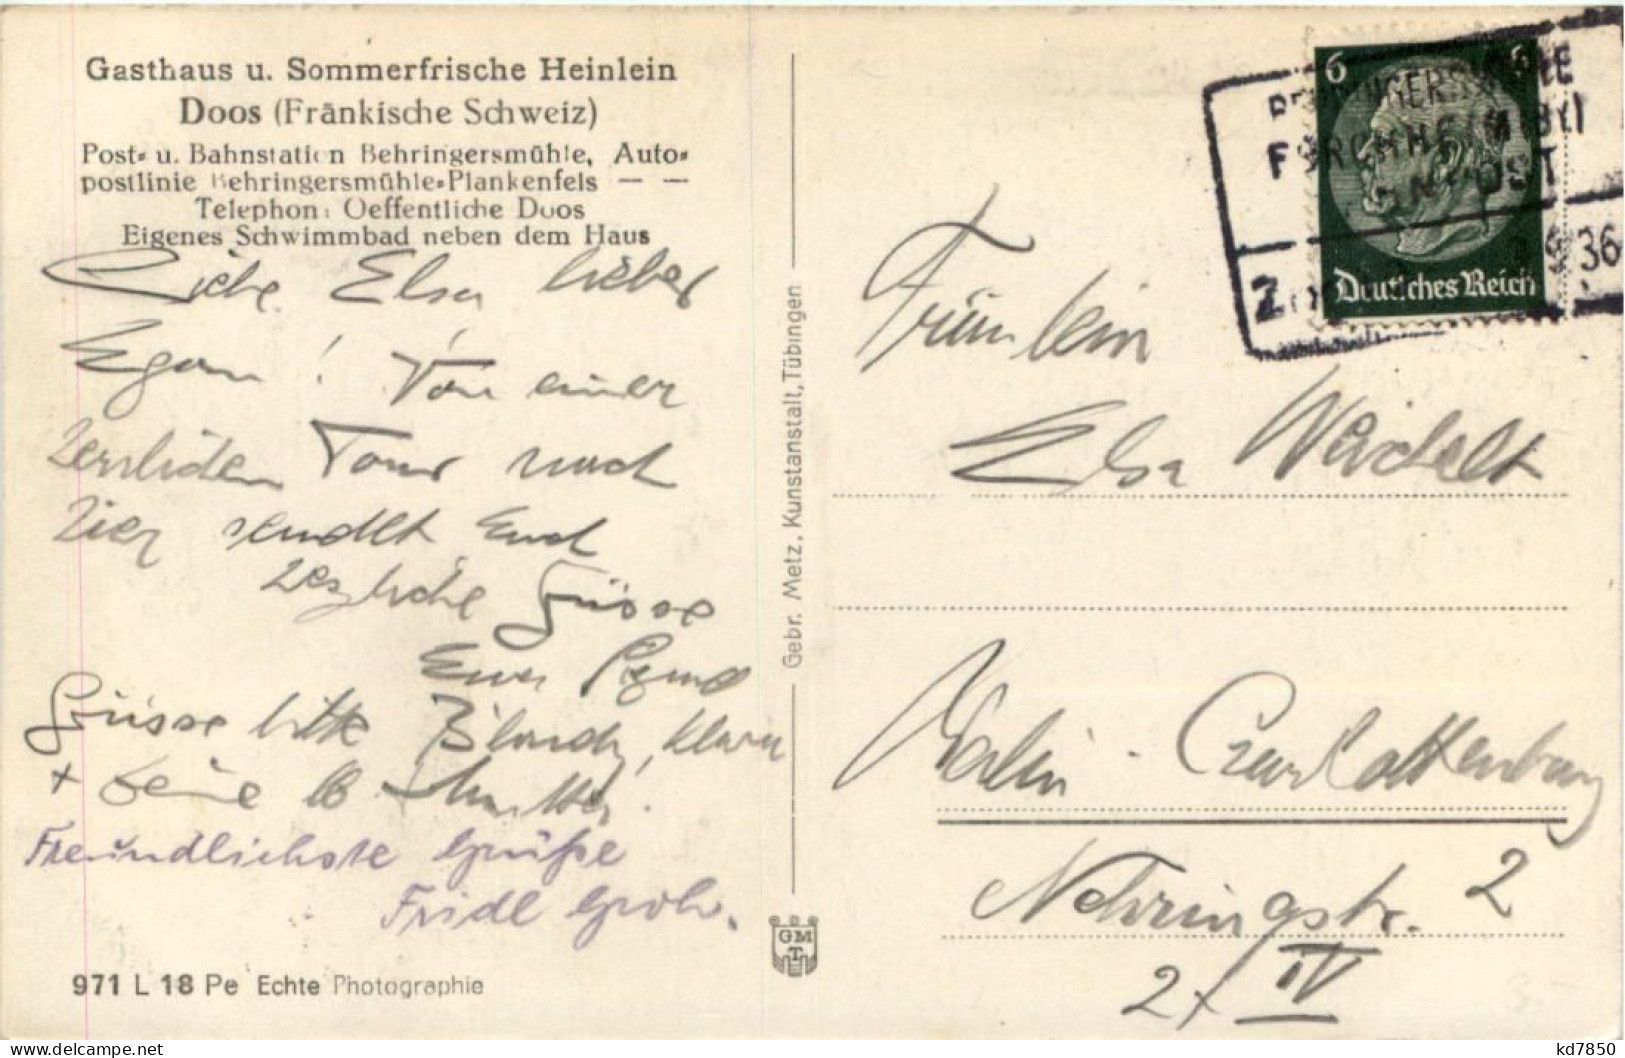 Gasthaus u. Sommerfrische Heinlein
Doos (Fränkische Schweiz)
Post- u. Bahnstation Behringersmühle, Auto-
postlinie Behringersmühle-Plankenfels — —
Telephon: Oeffentliche Doos
Eigenes Schwimmbad neben dem Haus
Liebe Elsa lieber
Egon! Von einer
herrlichen Tour nach
hier sendet Euch
herzliche Grüsse
Euer
Grüsse bitte Blondy, Klara
+ Deine lb Mutter.
Freundlichste Grüße
Fridl Groh.
971 L 18 Pe Echte Photographie
Gebr. Metz, Kunstanstalt, Tübingen
GM
T
6 6
Deutsches Reich
FORCHHEIM (BY)
36
Fräulein
Elsa
Berlin - Charlottenburg 2
Nehringstr.
IV
3.-
kd7850